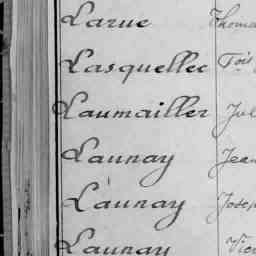 Larue Thoma
Lasquellec Fois
Laumailler Jul
Launay Jean
Launay Josep
Launay Vic